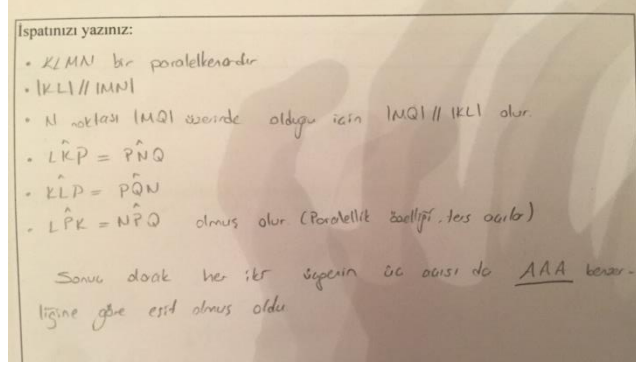 İspatınızı yazınız:
• KLMN bir paralelkenardır
• |KL| // |MN|
• N noktası |MQ| üzerinde olduğu için |MQ| // |KL| olur.
• LK̂P = PN̂Q
• KL̂P = PQ̂N
• LP̂K = NP̂Q olmuş olur. (Paralellik özelliği, ters açılar)
Sonuç olarak her iki üçgenin üç açısı da AAA benzer-
liğine göre eşit olmuş oldu.